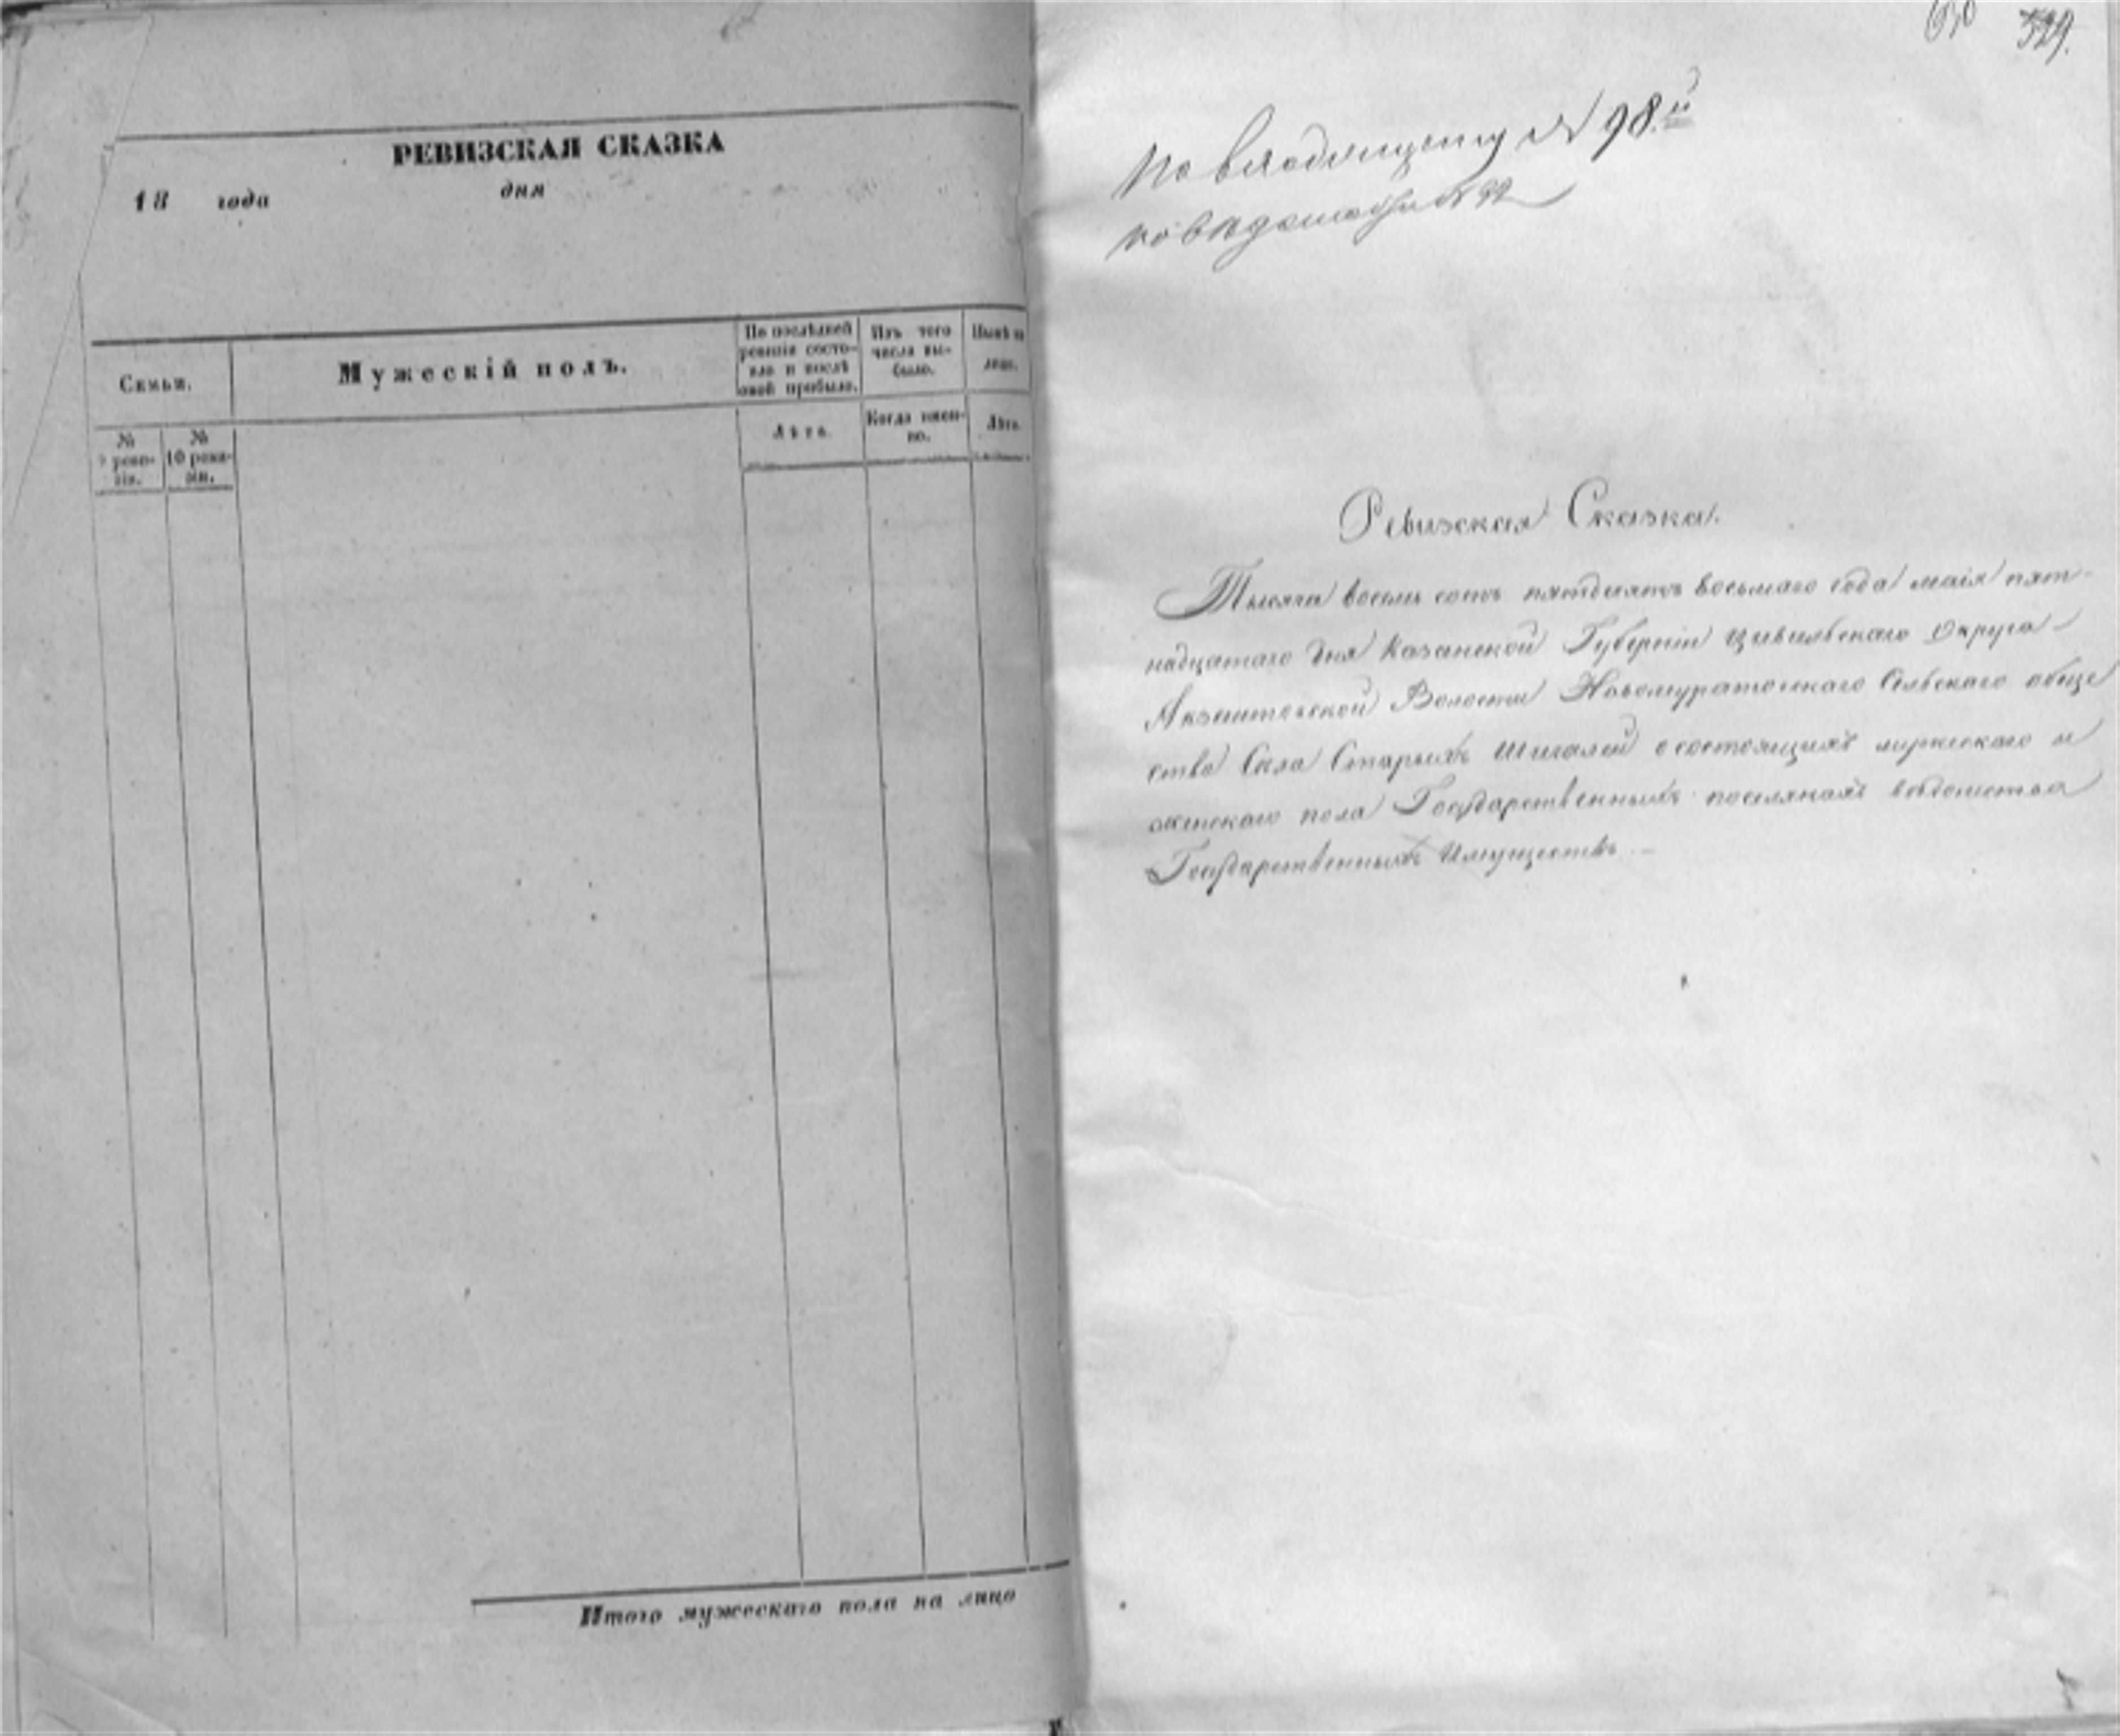 РЕВИЗСКАЯ СКАЗКА
18 года дня
Семьи.
Мужескій полъ.
По послѣдней ревизіи состояло и послѣ оной прибыло.
Изъ того числа выбыло.
Нынѣ на лицо.
№ 9 ревизіи.
№ 10 ревизіи.
Лѣта.
Когда именно.
Лѣта.
Итого мужескаго пола на лицо
529.
По входящему № 98.й
по вѣдомости № 92
Ревизская Сказка.
Тысяча восемь сотъ пятдесятъ восьмаго года маія пят-
надцатаго дня Казанской Губерніи Цивильскаго Округа
Акзеитовской Волости Новомуратовскаго Сельскаго обще
ства Села Старыхъ Шигалей о состоящихъ мужескаго и
женскаго пола Государственныхъ поселянахъ вѣдомства
Государственныхъ Имуществъ. —